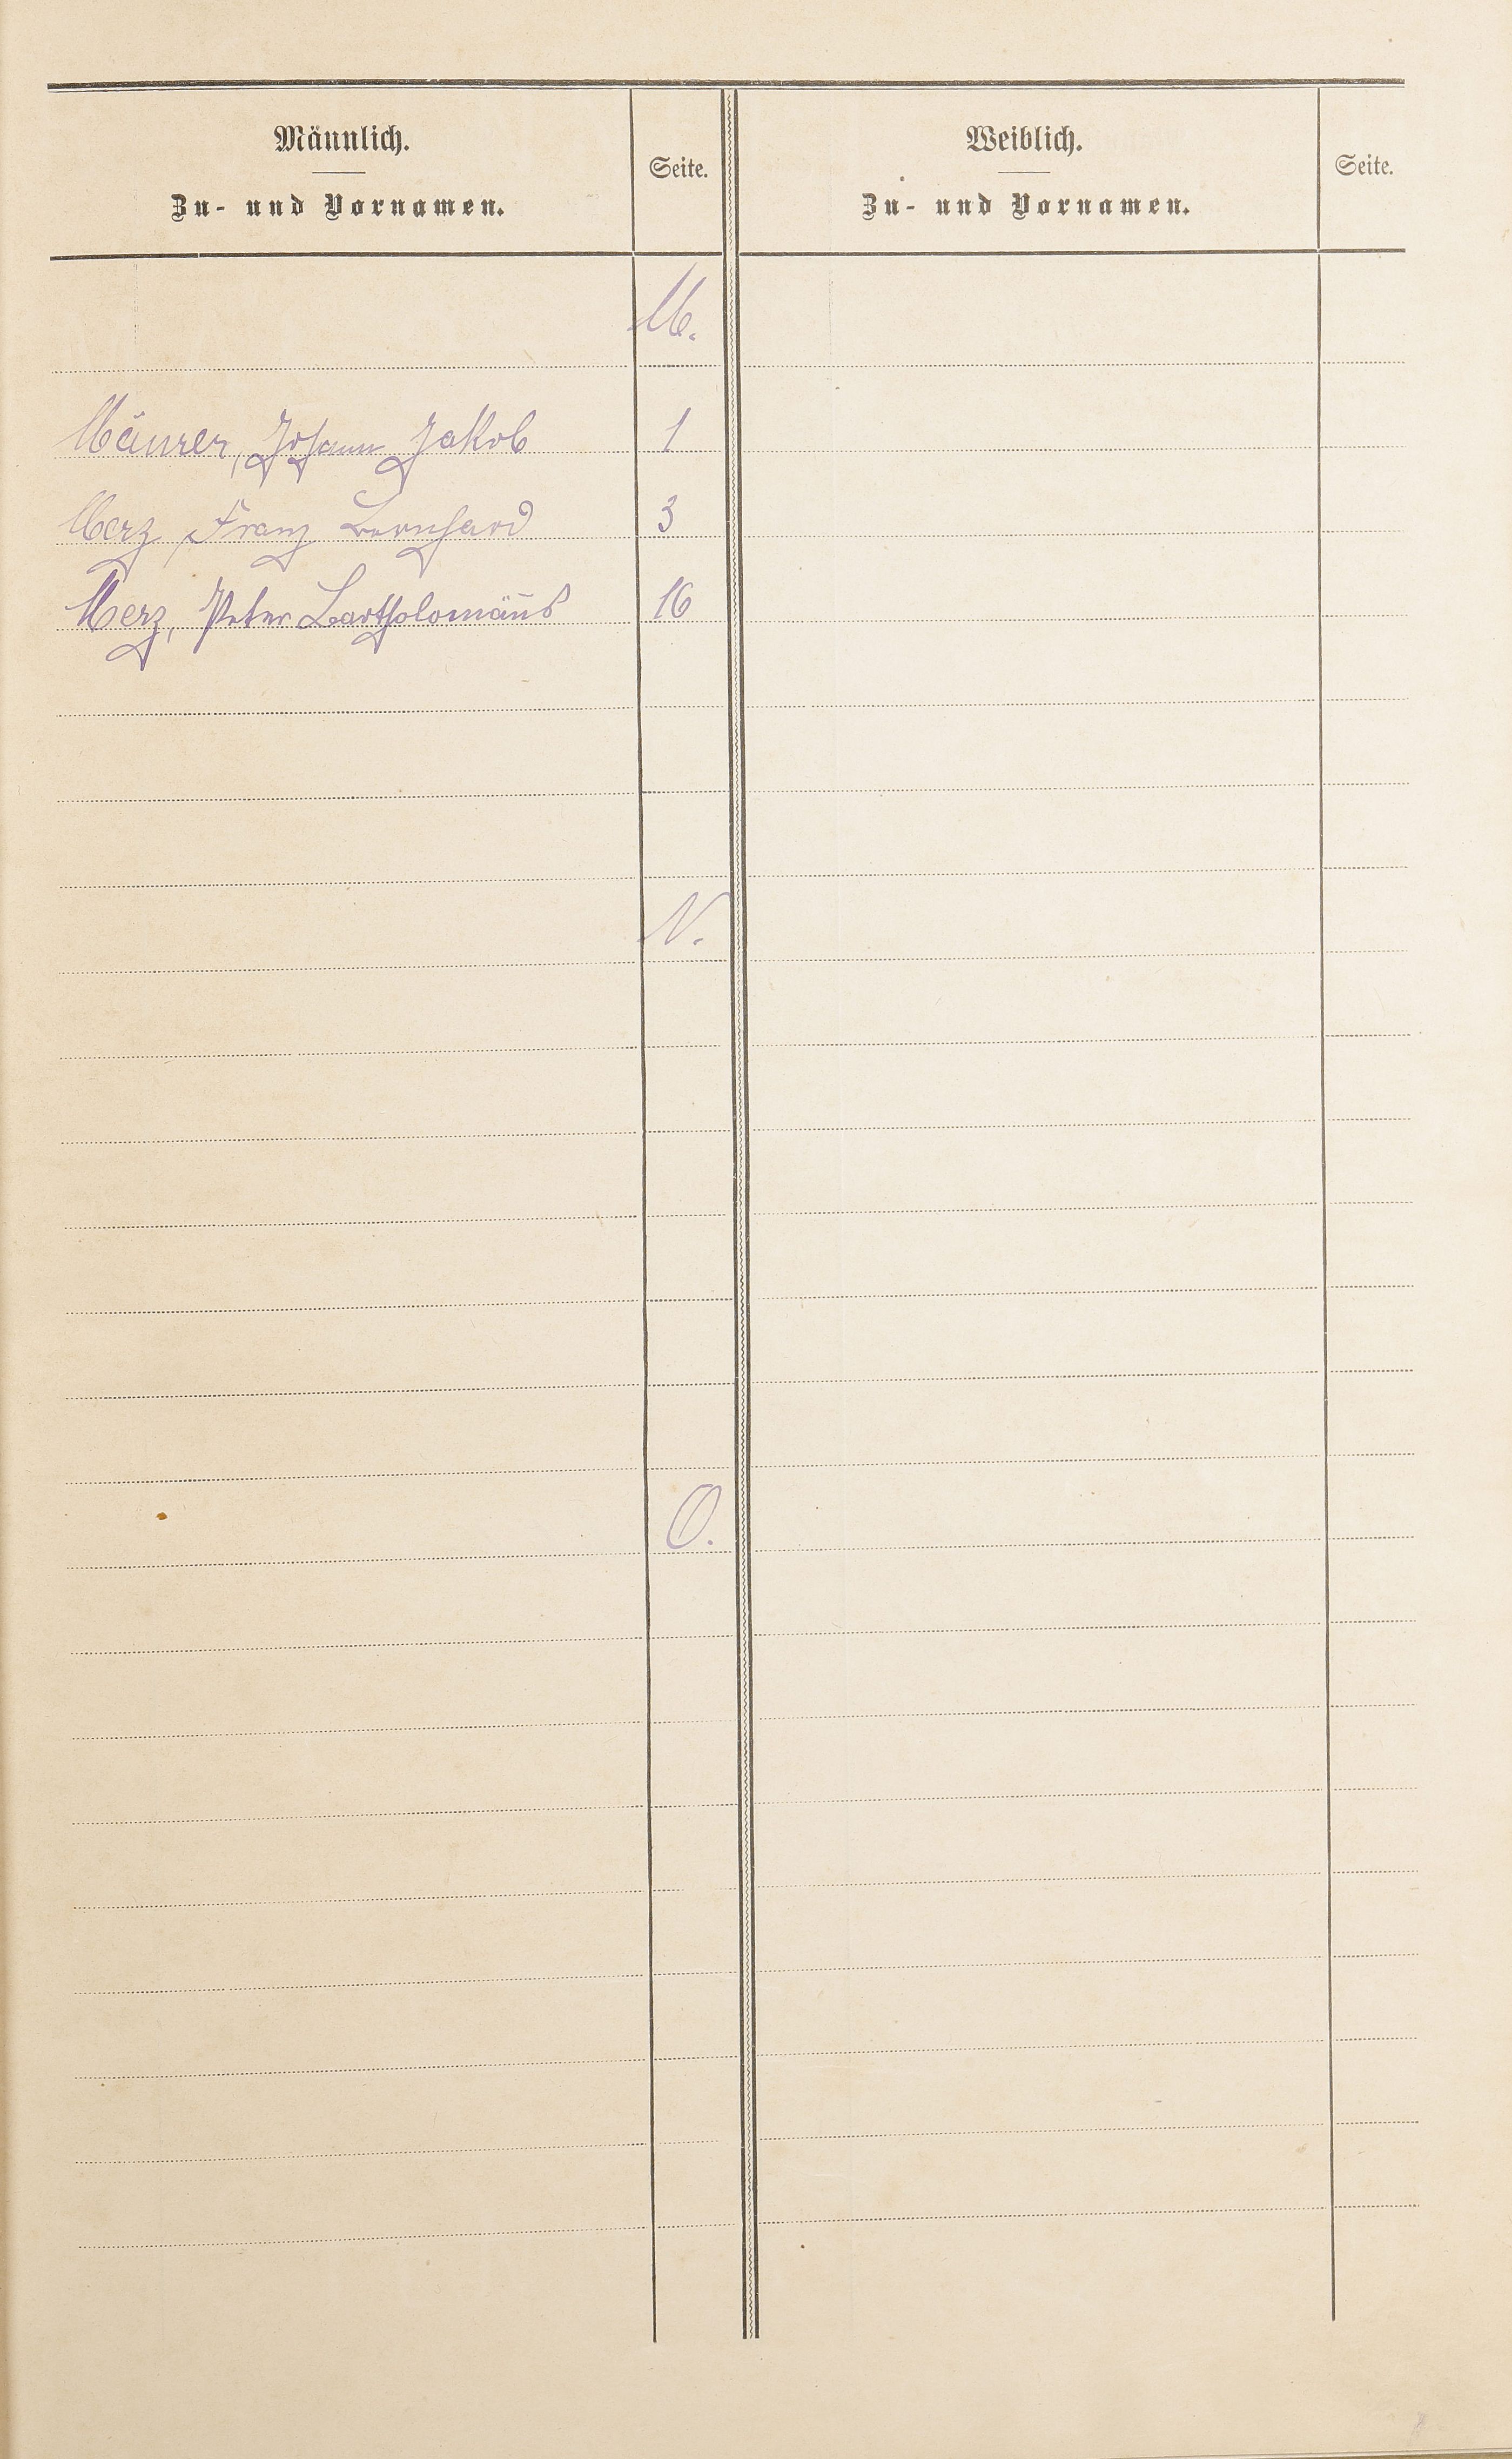 Männlich.
Zu- und Vornamen.
Seite.
Weiblich.
Zu- und Vornamen.
Seite.
M.
Mäurer, Johann Jakob 1
Merz, Franz Bernhard 3
Merz, Peter Bartholomäus 16
N.
O.